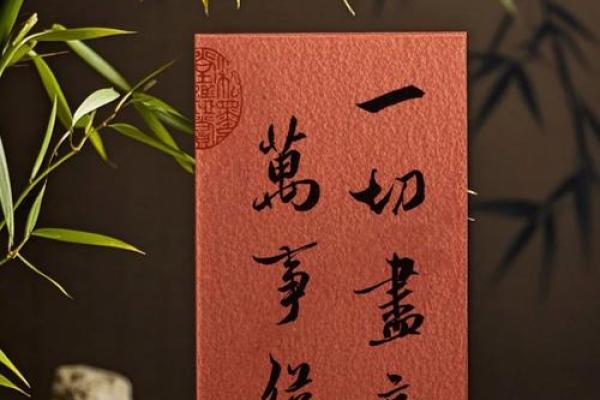 一切盡
萬事從